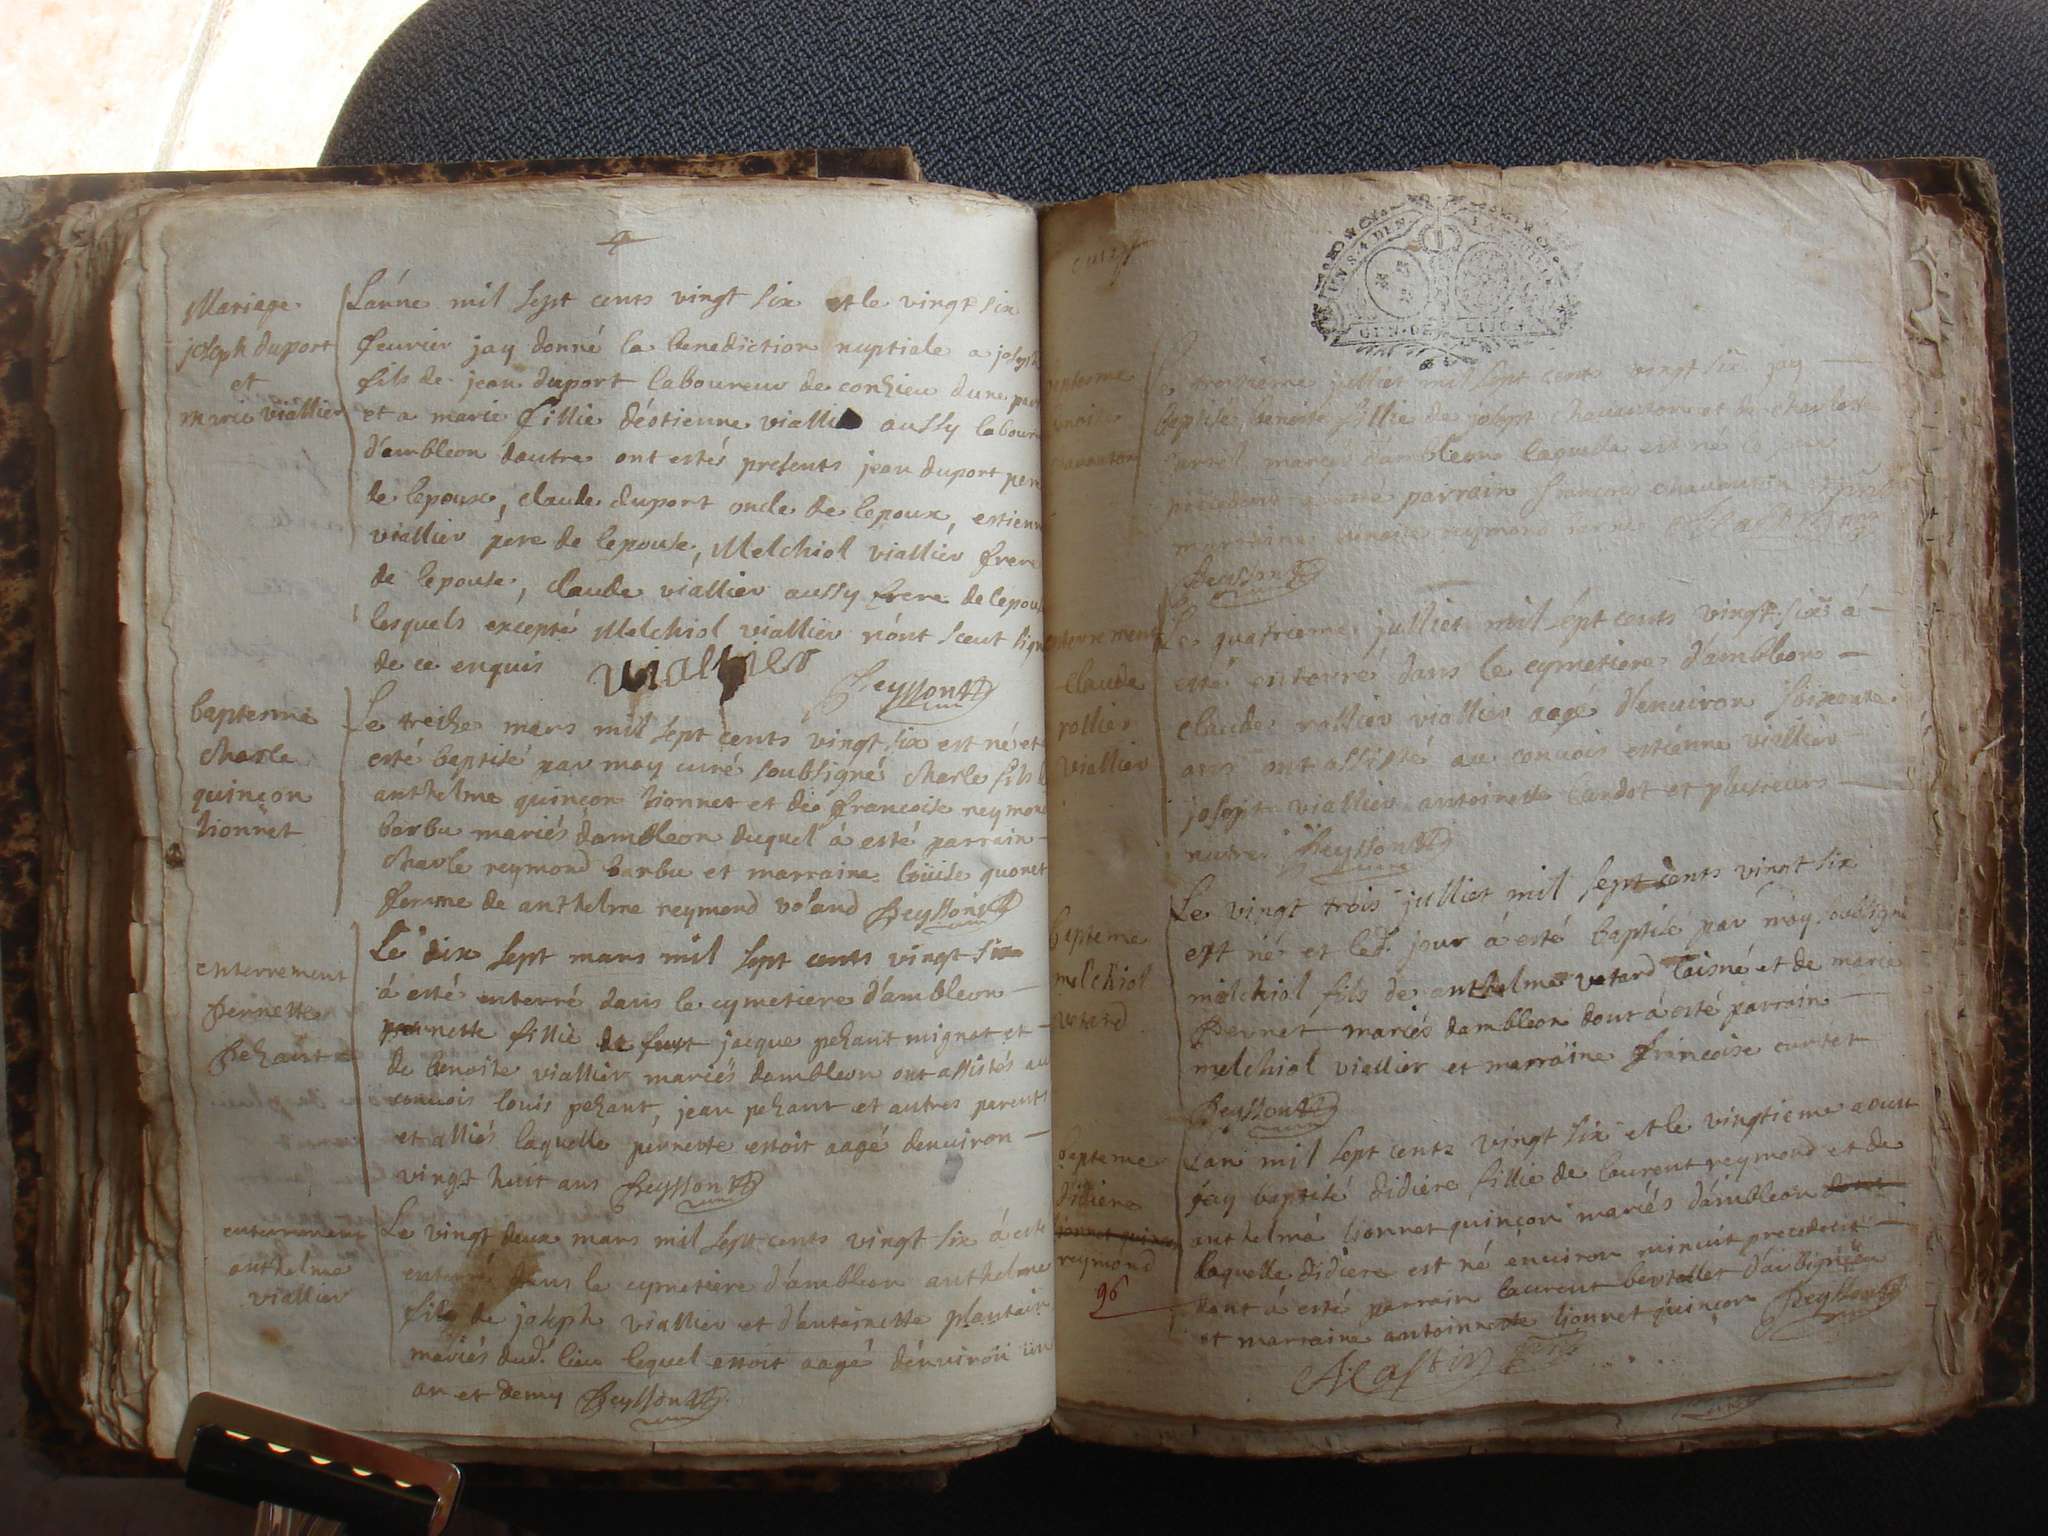 Mariage
joseph duport
et
marie viallier
L'anne mil sept cents vingt six et le vingt six
feurier jay donné la benediction nuptiale a joseph
fils de jean duport laboureur de conzieu dune part
et a marie fillie déstienne viallier aussy laboure
d'ambleon dautre ont estés presents jean duport pere
de lepoux, claude duport oncle de lepoux, estienne
viallier pere de lepouse, Melchiol viallier frere
de lepouse, claude viallier aussy frere de lepouse
lesquels excepté Melchiol viallier n'ont sceut signe
de ce enquis viallier
Peysson
baptesme
charle
quinçon
lionnet
Le treize mars mil sept cents vingt six est né et
esté baptisé par moy curé soubsigné charle fils
anthelme quinçon lionnet et de francoise reymond
barbu mariés d'ambleon duquel á esté parrain
charle reymond barbu et marraine loüise quonet
femme de anthelme reymond voland Peysson
enterrement
Pernette
Pezant
Le dix sept mars mil sept cents vingt six
á esté enterré dans le cymetiere d'ambleon
pernette fillie de fust jacque pezant mignot et
de benoite viallier mariés dambleon ont assistés au
convois louis pezant, jean pezant et autres parents
et alliés laquelle pernette estoit aagé denuiron
vingt huit ans Peysson
enterrement
anthelme
viallier
Le vingt deux mars mil sept cents vingt six á esté
enterré dans le cymetiere d'ambleon anthelme
fils de joseph viallier et d'antoinette plantain
mariés dud. lieu lequel estoit aagé d'enuiron un
an et demy Peysson
GEN. DE LION
Le troisieme julliet mil sept cents vingt six jay
baptisé benoite fillie de josept chauanton et de charlotte
mariés d'ambleon laquelle est né le jour
precedent a esté parrain francois chauanton
marraine benoite reymond
Peysson
enterrement
claude
rollier
viallier
Le quatrieme julliet mil sept cents vingt six á
esté enterré dans le cymetiere d'ambleon
claude rollier viallier aagé d'enuiron soixante
ans ont assisté au conuois estienne viallier
josept viallier antoinette cardot et plusieurs
autres Peysson
bapteme
melchiol
votard
Le vingt trois julliet mil sept cents vingt six
est né et led. jour á esté baptisé par moy soussigné
melchiol fils de anthelme votard laisné et de marie
Peunet mariés dambleon dont á esté parrain
melchiol viallier et marraine francoise curtet
Peysson
bapteme
didiere
lionnet quinçon
reymond
96
Lan mil sept cents vingt six et le vingtieme aoust
jay baptisé didiere fillie de laurent reymond et de
anthelma lionnet quinçon mariés d'ambleon dont
laquelle didiere est né enuiron minuit precedent
dont á esté parrain laurent bertollet d'arbignieu
et marraine antoinette lionnet quinçon Peysson